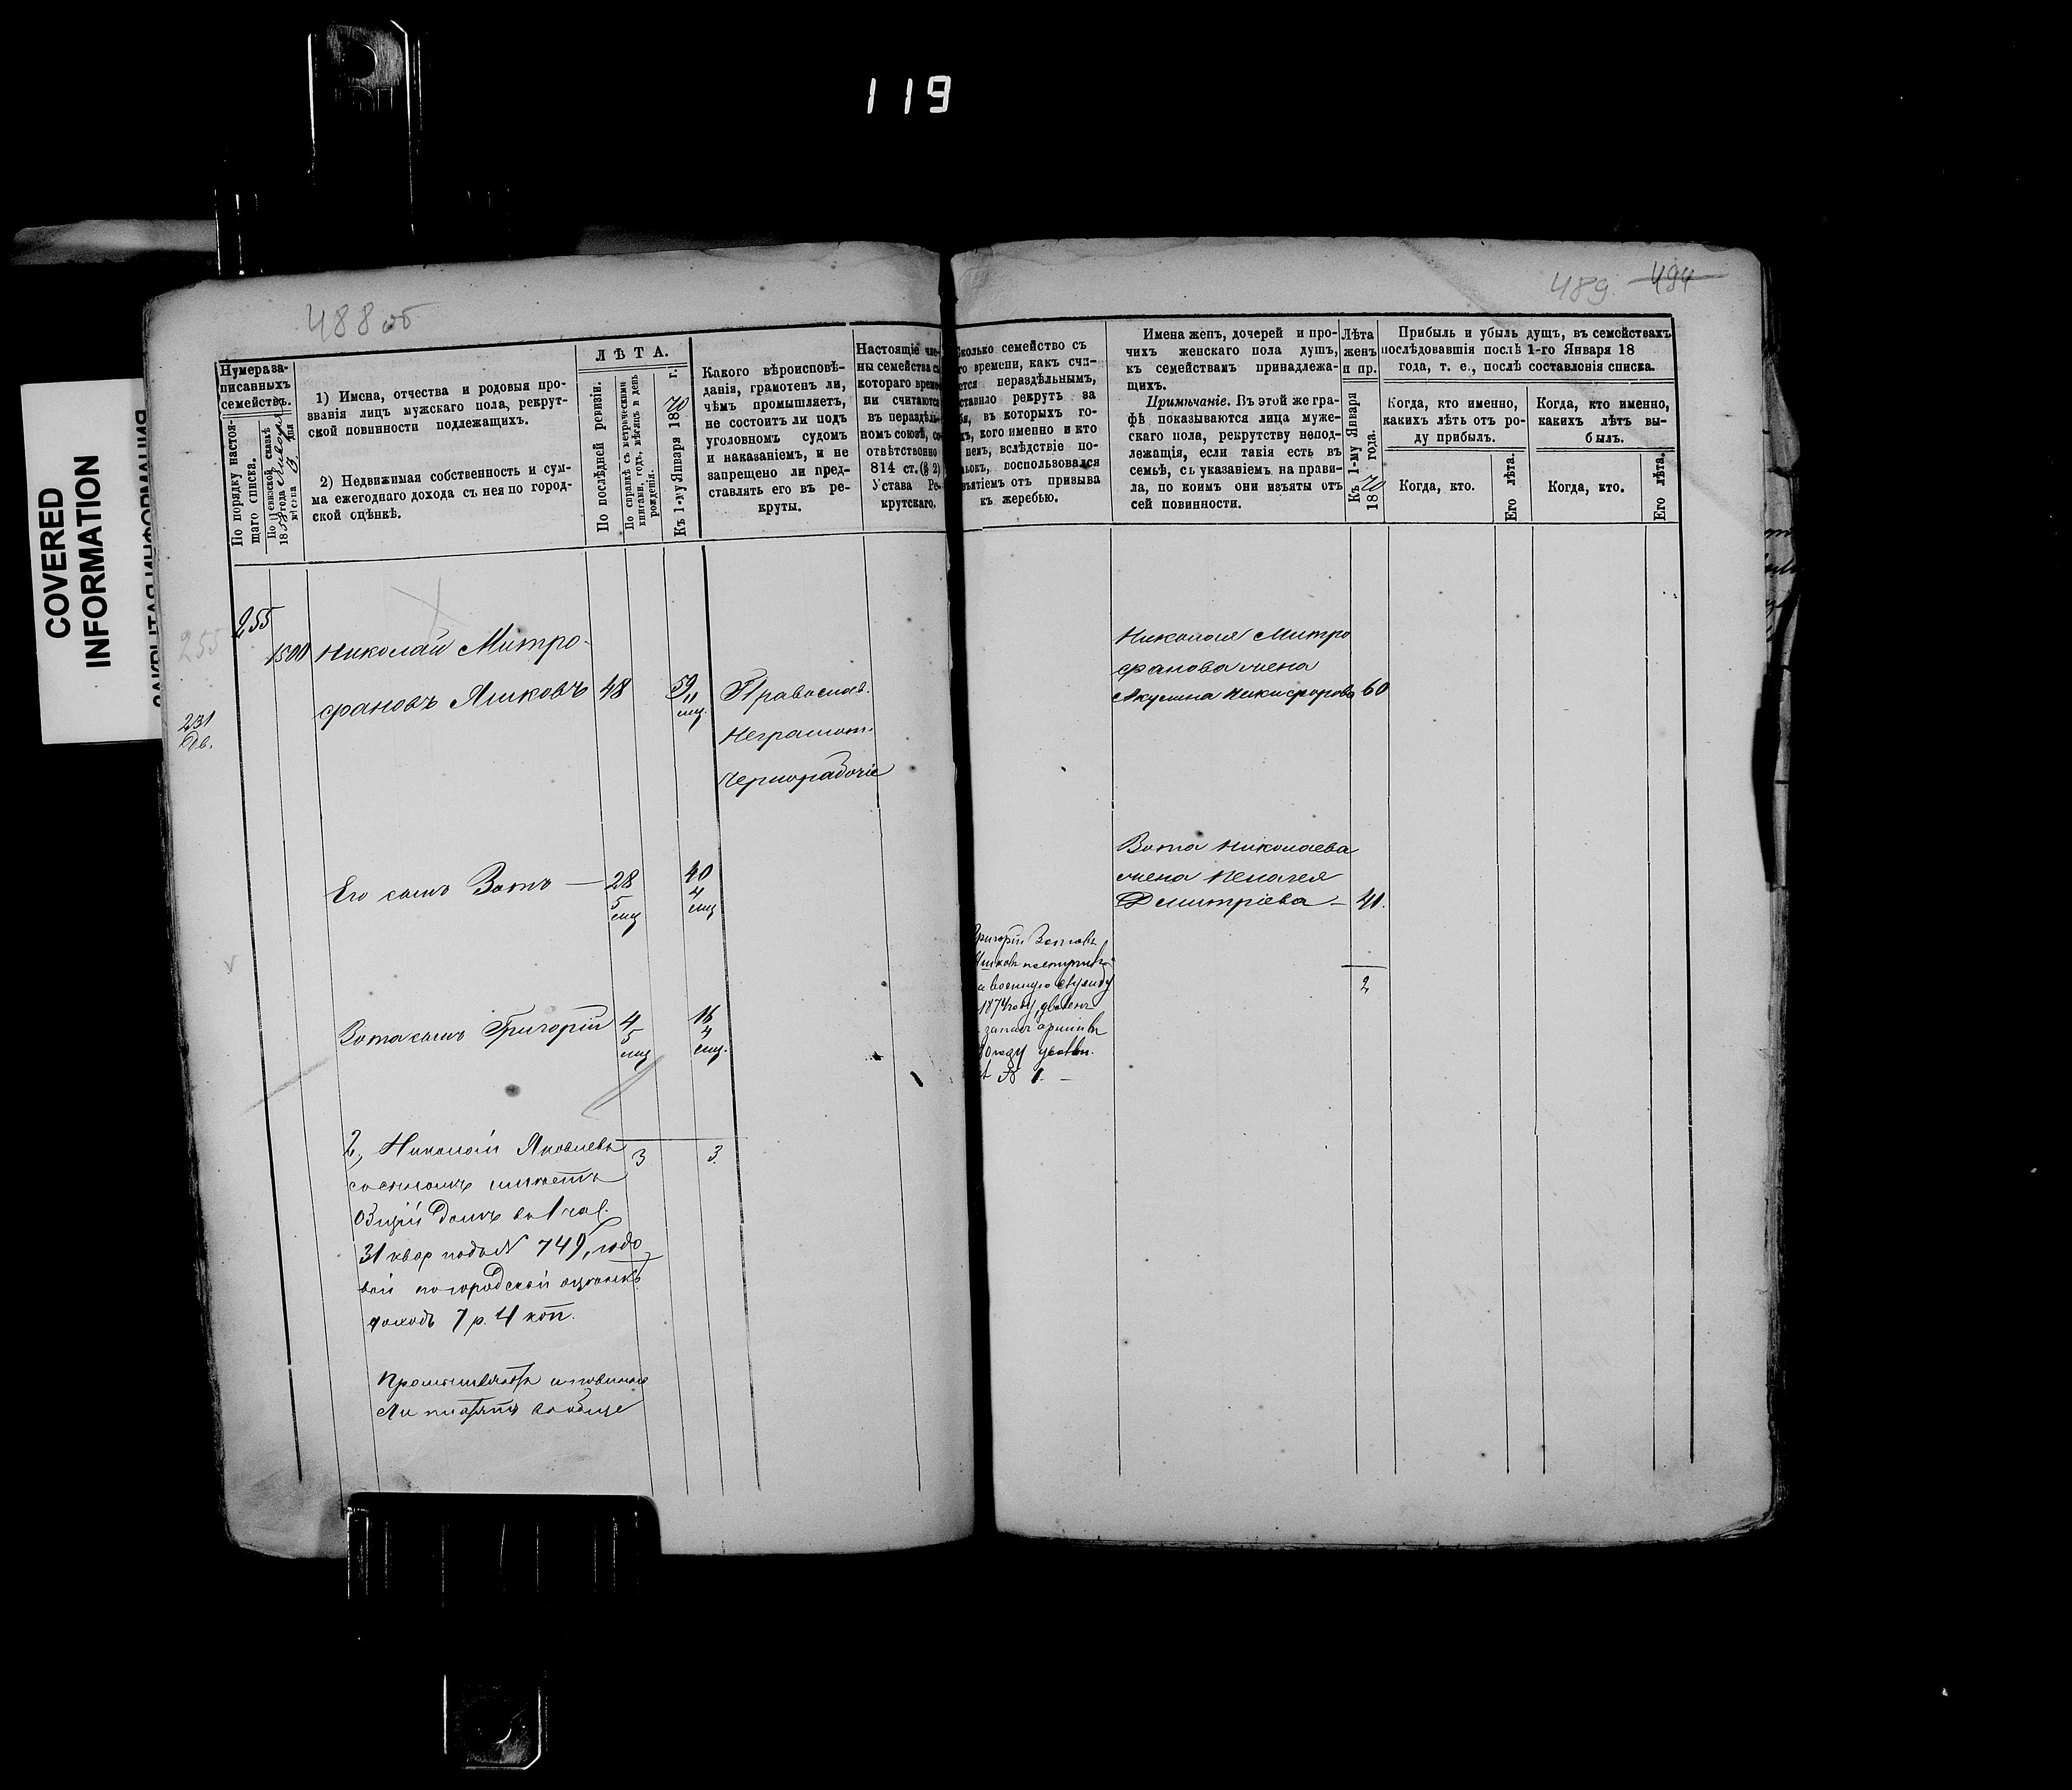 119
COVERED
INFORMATION
ЗАКРЫТАЯ ИНФОРМАЦИЯ
488 об
Нумера за-
писанныхъ
семействъ.
По порядку настоя-
щаго списка.
По ревизской сказкѣ
1858 года
мѣсяца 13 дня
1) Имена, отчества и родовыя про-
званія лицъ мужскаго пола, рекрут-
ской повинности подлежащихъ.
2) Недвижимая собственность и сум-
ма ежегоднаго дохода съ нея по город-
ской оцѣнкѣ.
ЛѢТА.
По послѣдней ревизіи.
По справкѣ съ метрическими
книгами, годъ, мѣсяцъ и день
рожденія.
Къ 1-му Января 1870 г.
Какого вѣроисповѣ-
данія, грамотенъ ли,
чѣмъ промышляетъ,
не состоитъ ли подъ
уголовномъ судомъ
и наказаніемъ, и не
запрещено ли пред-
ставлять его въ ре-
круты.
Настоящіе чле-
ны семейства съ
котораго време-
ни считаются
въ нераздѣль-
номъ союзѣ, со-
отвѣтственно
814 ст. (§ 2)
Устава Ре-
крутскаго.
255
255
1500
Николай Митро-
фановъ Яшковъ 48 59
11
мц.
Православ.
Неграмот.
Чернорабочіе
231
Его сынъ Зотъ — 28 40
5 4
мц мц
Зота сынъ Григорій 4 16
5 4
мц мц.
3 3.
2, Николай Яковлевъ
съ сыномъ имѣетъ
Общій домъ въ 1 час.
31 квар подъ N 749, годо
вой по городской оцѣнкѣ
доходъ 7 р. 4 коп.
платятъ вообще
489 494
сколько семейство съ
го времени, какъ счи-
ается нераздѣльнымъ,
ставило рекрутъ за
бя, въ которыхъ го-
хъ, кого именно и кто
немъ, вслѣдствіе по-
воспользовался
зъятіемъ отъ призыва
къ жеребью.
Имена женъ, дочерей и про-
чихъ женскаго пола душъ,
къ семействамъ принадлежа-
щихъ.
Примѣчаніе. Въ этой же гра-
фѣ показываются лица муже-
скаго пола, рекрутству непод-
лежащія, если такія есть въ
семьѣ, съ указаніемъ на прави-
ла, по коимъ они изъяты отъ
сей повинности.
Лѣта
женъ
и пр.
Къ 1-му Января
1870 года.
Прибыль и убыль душъ, въ семействахъ
послѣдовавшія послѣ 1-го Января 18
года, т. е., послѣ составленія списка.
Когда, кто именно,
какихъ лѣтъ отъ ро-
ду прибылъ.
Когда, кто именно,
какихъ лѣтъ вы-
былъ.
Когда, кто.
Его лѣта.
Когда, кто.
Его лѣта.
Николая Митро
фанова жена
Акулина Никифорова 60
Зота Николаева
жена Пелагея
Дмитріева — 41.
2
Григорій Зотовъ
Яшковъ поступилъ
а военную службу
1874 году,
запасъ арміи въ
N 1. —